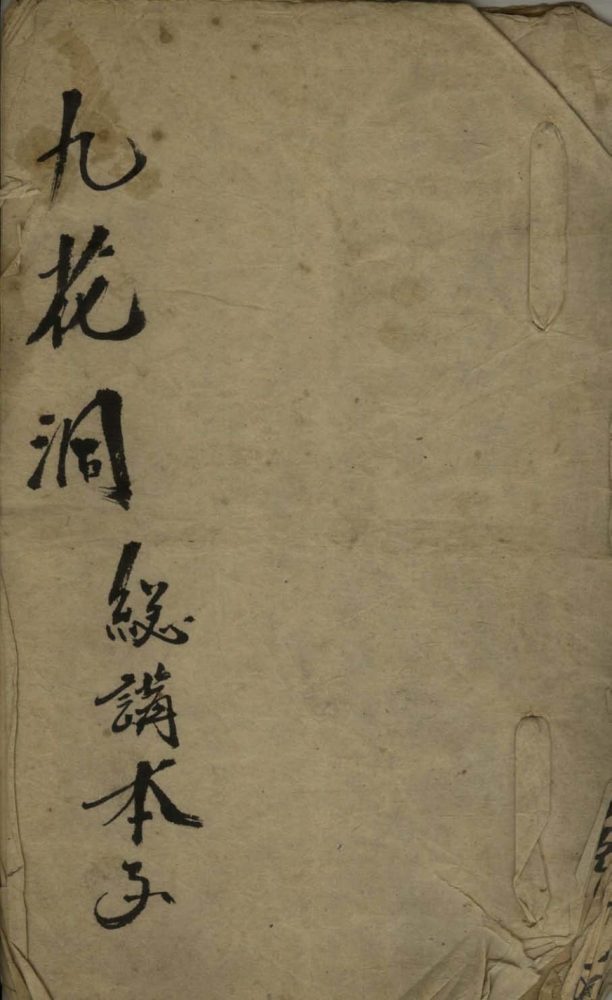 九花洞
総講本子